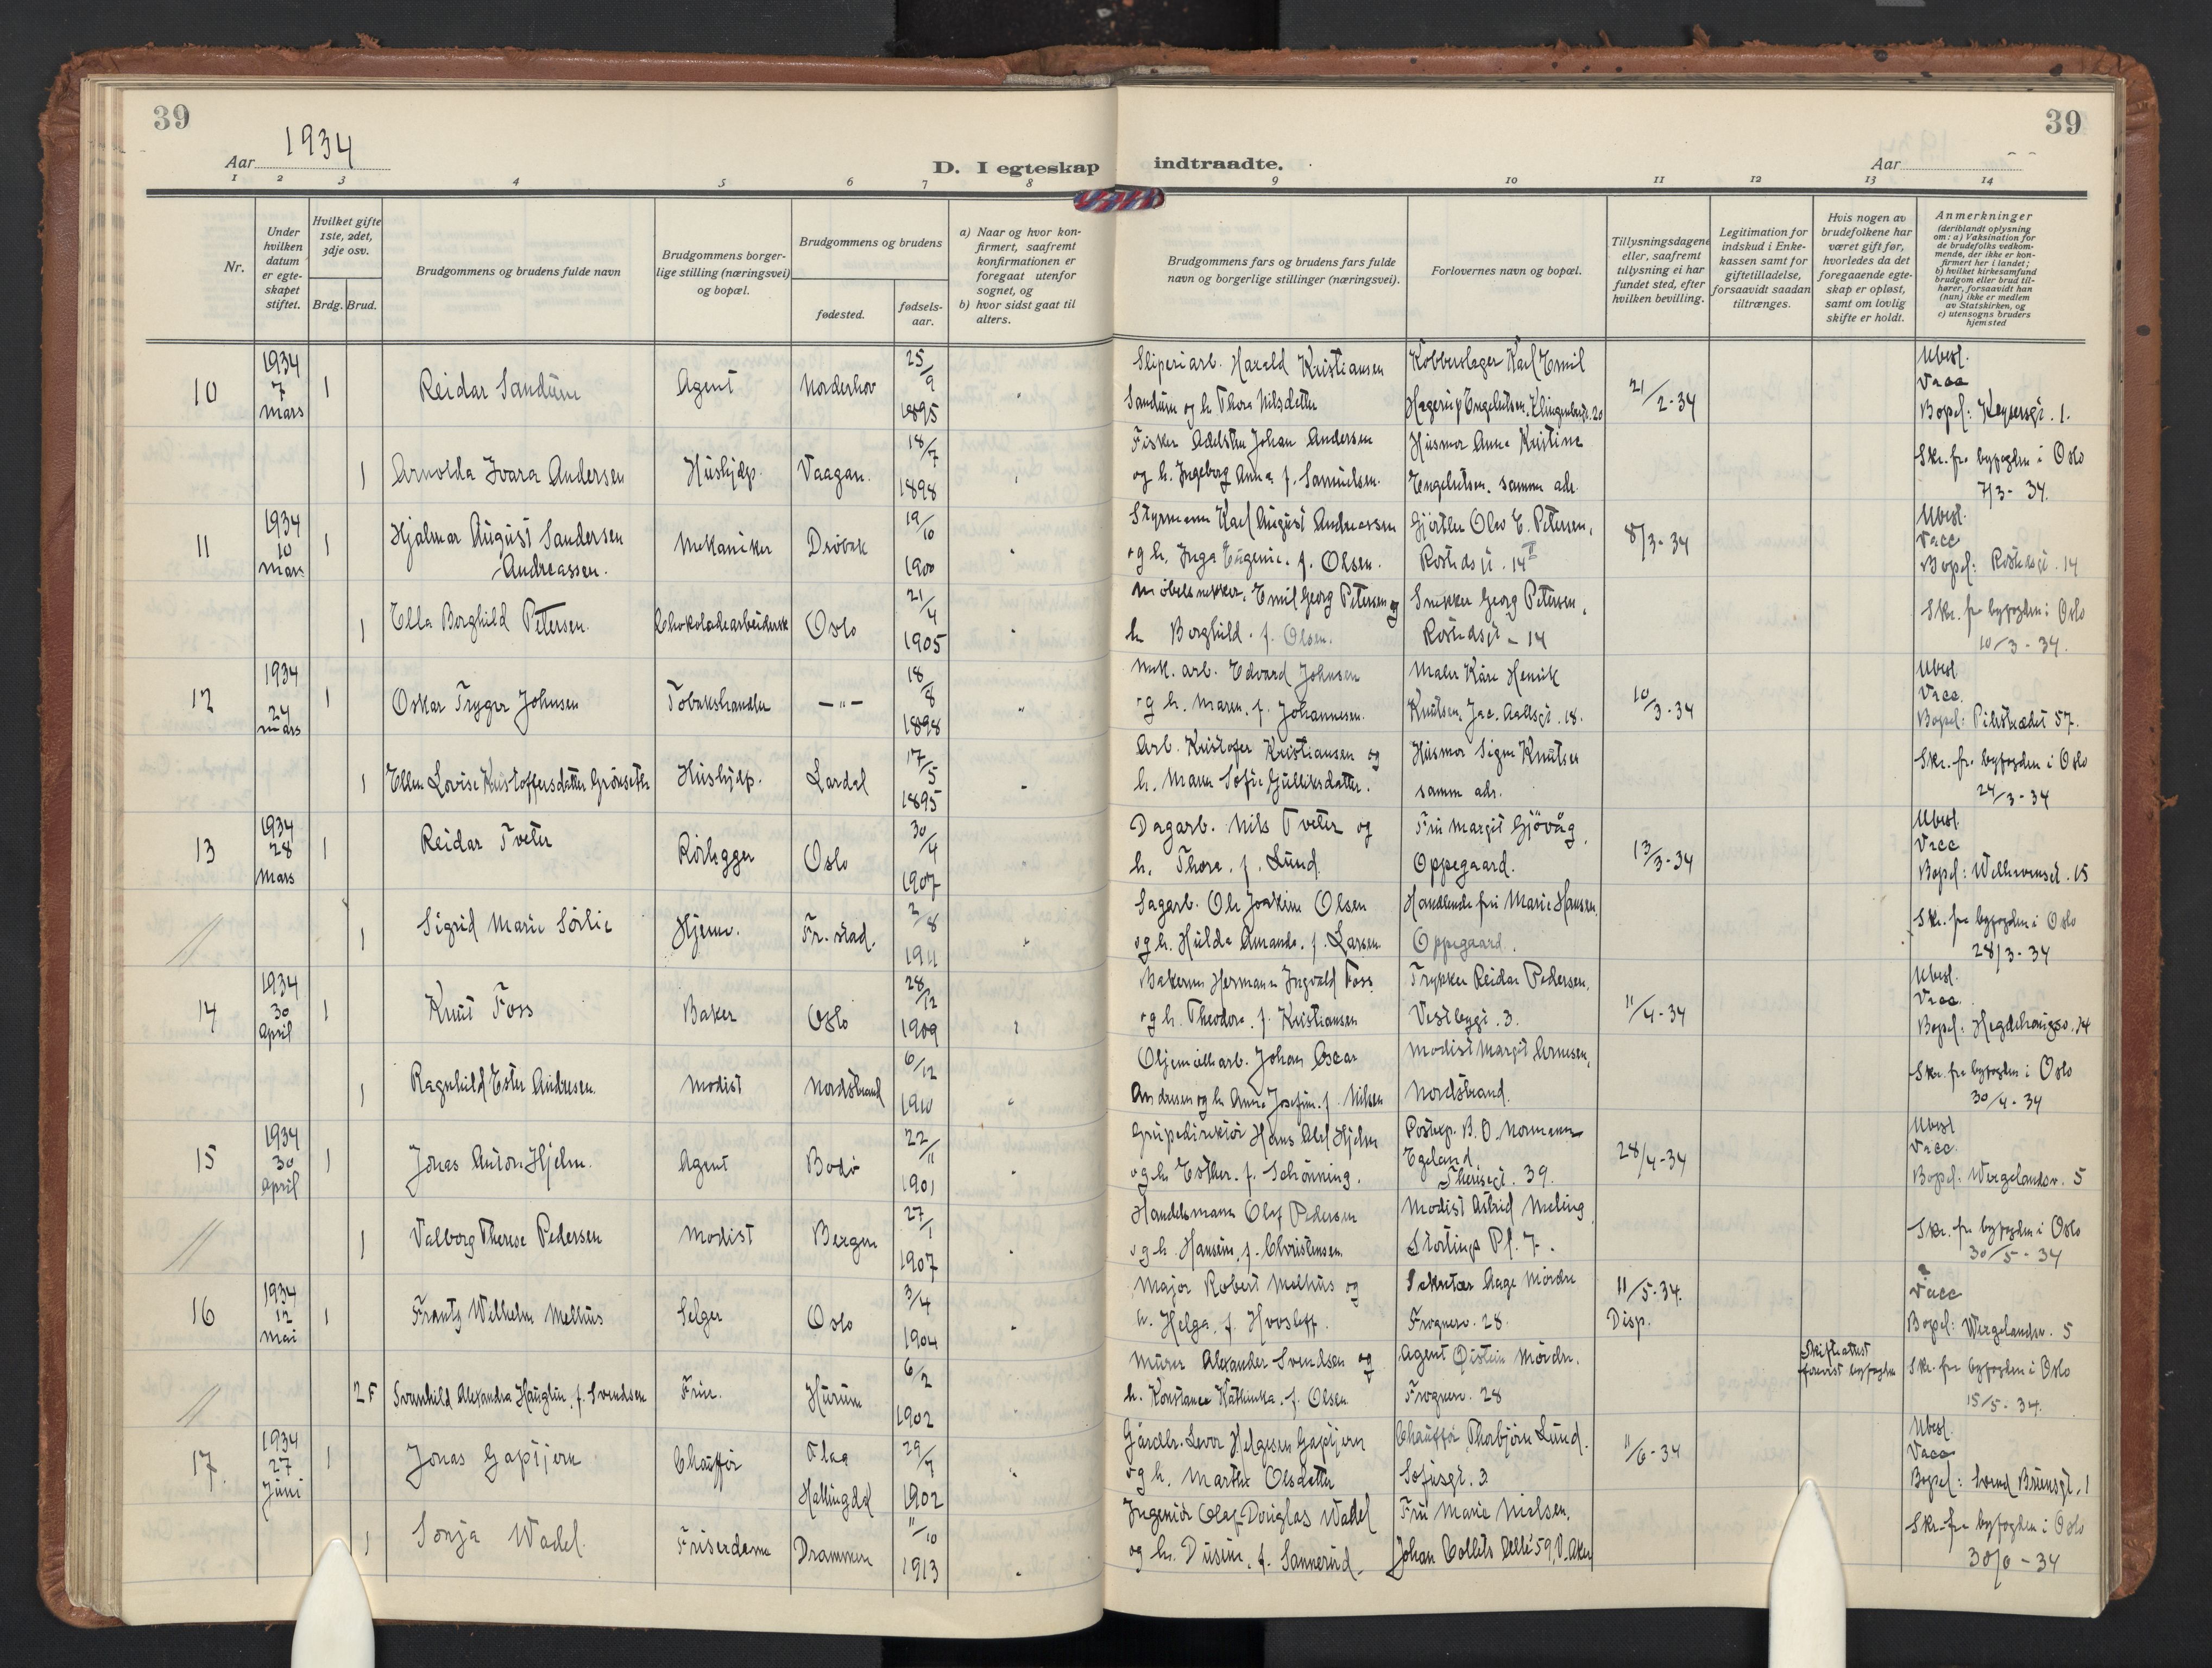 39
39
Aar 1934
D. I egteskap indtraadte.
Aar
1 2 3 4 5 6 7 8 9 10 11 12 13 14
Nr.
Under hvilken datum er egteskapet stiftet.
Hvilket gifte 1ste, 2det, 3dje osv.
Brdg. Brud.
Brudgommens og brudens fulde navn
Brudgommens borgerlige stilling (næringsvei) og bopæl.
Brudgommens og brudens
fødested.
fødselsaar.
a) Naar og hvor konfirmert, saafremt konfirmationen er foregaat utenfor sognet, og
b) hvor sidst gaat til alters.
Brudgommens fars og brudens fars fulde navn og borgerlige stillinger (næringsvei).
Forlovernes navn og bopæl.
Tillysningsdagene eller, saafremt tillysning ei har fundet sted, efter hvilken bevilling.
Legitimation for indskud i Enkekassen samt for giftetilladelse, forsaavidt saadan tiltrænges.
Hvis nogen av brudefolkene har været gift før, hvorledes da det foregaaende egteskap er opløst, samt om lovlig skifte er holdt.
Anmerkninger
(deriblandt oplysning om: a) Vaksination for de brudefolks vedkommende, der ikke er konfirmert her i landet; b) hvilket kirkesamfund brudgom eller brud tilhører, forsaavidt han (hun) ikke er medlem av Statskirken, og c) utensogns bruders hjemsted
10 1934 7 mars 1 Reidar Sandum Agent Norderhov 25/9 1895
Sliperiarb. Harald Kristiansen Kobberslager Karl Emil
Sandum og h. Thora Nilsdatter Hagerup Engelutsen 21/2-34
Ubesl. Vacc Bopel: Keysersgt. 1.
1 Arnolda Ivara Andersen Hushjelp. Vaagan. 18/7 1898
Fisker Adelsten Johan Andersen Husmor Anna Kristine
og h. Ingeborg Anna f. Samuelsen. Engelutsen. samme adr.
Skr. fra byfogden i Oslo 7/3-34.
11 1934 10 mars 1 Hjalmar August Sandersen Andreassen. Mekaniker Drøbak 19/10 1900
Styrmann Karl August Andreassen Gjørtler Olav E. Petersen,
og h. Inga Eugenie. f. Olsen. Rostedsgt. 14 II 8/3-34
Ubesl. Vacc Bopel: Rostedsgt. 14
1 Ella Borghild Petersen. Chokoladearbeiderske Oslo 21/4 1905
Møbelsnekker. Emil Georg Petersen og Snekker Georg Petersen,
h. Borghild. f. Olsen. Rostedsgt. 14
Skr. fra byfogden i Oslo 10/3-34.
12 1934 24 mars 1 Oskar Trygve Johnsen Tobakshandler —"— 18/8 1898
Mek. arb. Edvard Johnsen Maler Kåre Henrik
og h. Maren. f. Johannesen. Knutsen, Jac. Aallsgt. 18. 10/3-34
Ubesl. Vacc. Bopel: Pilestrædet 57.
1 Ellen Lovise Kristoffersdatter Grönseth Hushjelp. Lardal 17/5 1895
Arb. Kristofer Kristiansen og Husmor Signe Knutsen
h. Maren Sofie Gulliksdatter. samme adr.
Skr. fra byfogden i Oslo 24/3-34
13 1934 28 Mars 1 Reidar Tveter Rørlegger Oslo 30/4 1907
Dagarb. Nils Tveter og Fru Margit Gjövåg,
h. Thora. f. Lund. Oppegaard. 13/3-34
Ubesl. Vacc Bopel: Welhavensgt. 15
1 Sigrid Marie Sörlie Hjemv. Fr.stad. 2/8 1911
Sagarb. Ole Joakim Olsen Handlende fru Marie Hansen,
og h. Hulda Amanda. f. Larsen. Oppegaard.
Skr. fra byfogden i Oslo 28/3-34
14 1934 30 April 1 Knut Foss Baker Oslo 28/12 1909
Bakerm Hermann Ingvald Foss Trykker Reidar Pedersen,
og h. Theodora. f. Kristiansen Vestbygt. 3. 11/4-34
Ubesl. Vacc. Bopel: Hegdehaugsv. 14
1 Ragnhild Ester Andresen. Modist Nordstrand 6/12 1910
Oljemöllearb. Johan Oscar Modist Margit Arnesen,
Andresen og h. Anna Josefine. f. Nilsen Nordstrand.
Skr. fra byfogden i Oslo 30/4-34
15 1934 30 april 1 Jonas Anton Hjelm. Agent Bodö 22/11 1901
Grubedirektör Hans Abel Hjelm Postexp. B. O. Normann
og h. Esther. f. Schönning. Egeland, Theresegt. 39. 28/4-34
Ubesl Vacc. Bopel: Wergelandsv. 5
1 Valborg Therese Pedersen Modist Bergen 27/1 1907
Handelsmann Olaf Pedersen Modist Astrid Meling
og h. Hansine, f. Christensen. Stortings Pl. 7.
Skr. fra byfogden i Oslo 30/5-34
16 1934 12 Mai 1 Frantz Wilhelm Melhus Selger Oslo 3/4 1904
Major Robert Melhus og Sekretær Aage Mördre
h. Helga. f. Hovsleff. Frognerv. 28. 11/5-34. Disp.
Vacc Bopel: Wergelandsv. 5
2 F Svanhild Alexandra Hauglin, f. Svendsen Frue. Hurum 6/2 1902
Murer Alexander Svendsen og Agent Øistein Mördre.
h. Konstance Kathinka. f. Olsen Frognerv. 28
Skifteattest forevist byfogden
Skr. fra byfogden i Oslo 15/5-34.
17. 1934 27 Juni 1 Jonas Gaptjern Chauffør Flaa Hallingdal 29/7 1902
Gårdbr. Levor Helgesen Gaptjern Chauffør Thorbjörn Lund.
og h. Marthe Olsdatter Sofiesgt. 3 11/6-34
Ubesl. Vacc Bopel: Svend Bruunsgt. 1
1 Sonja Wadel. Friserdame Drammen 11/10 1913
Ingeniør Olaf Douglas Wadel Fru Marie Nielsen.
og h. Dusine. f. Sannerud. Johan Colletts Allé 59, V. Aker
Skr. fra byfogden i Oslo